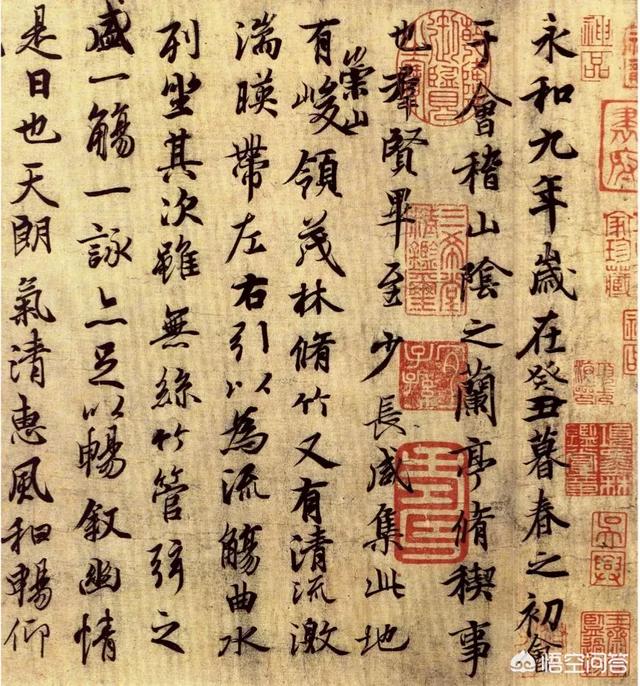 永和九年歲在癸丑暮春之初會
于會稽山陰之蘭亭脩稧事
也羣賢畢至少長咸集此地
有崇山峻領茂林脩竹又有清流激
湍暎帶左右引以為流觴曲水
列坐其次雖無絲竹管弦之
盛一觴一詠亦足以暢叙幽情
是日也天朗氣清惠風和暢仰
神品
三希堂精鑑璽
宜子孫
吳興
悟空问答